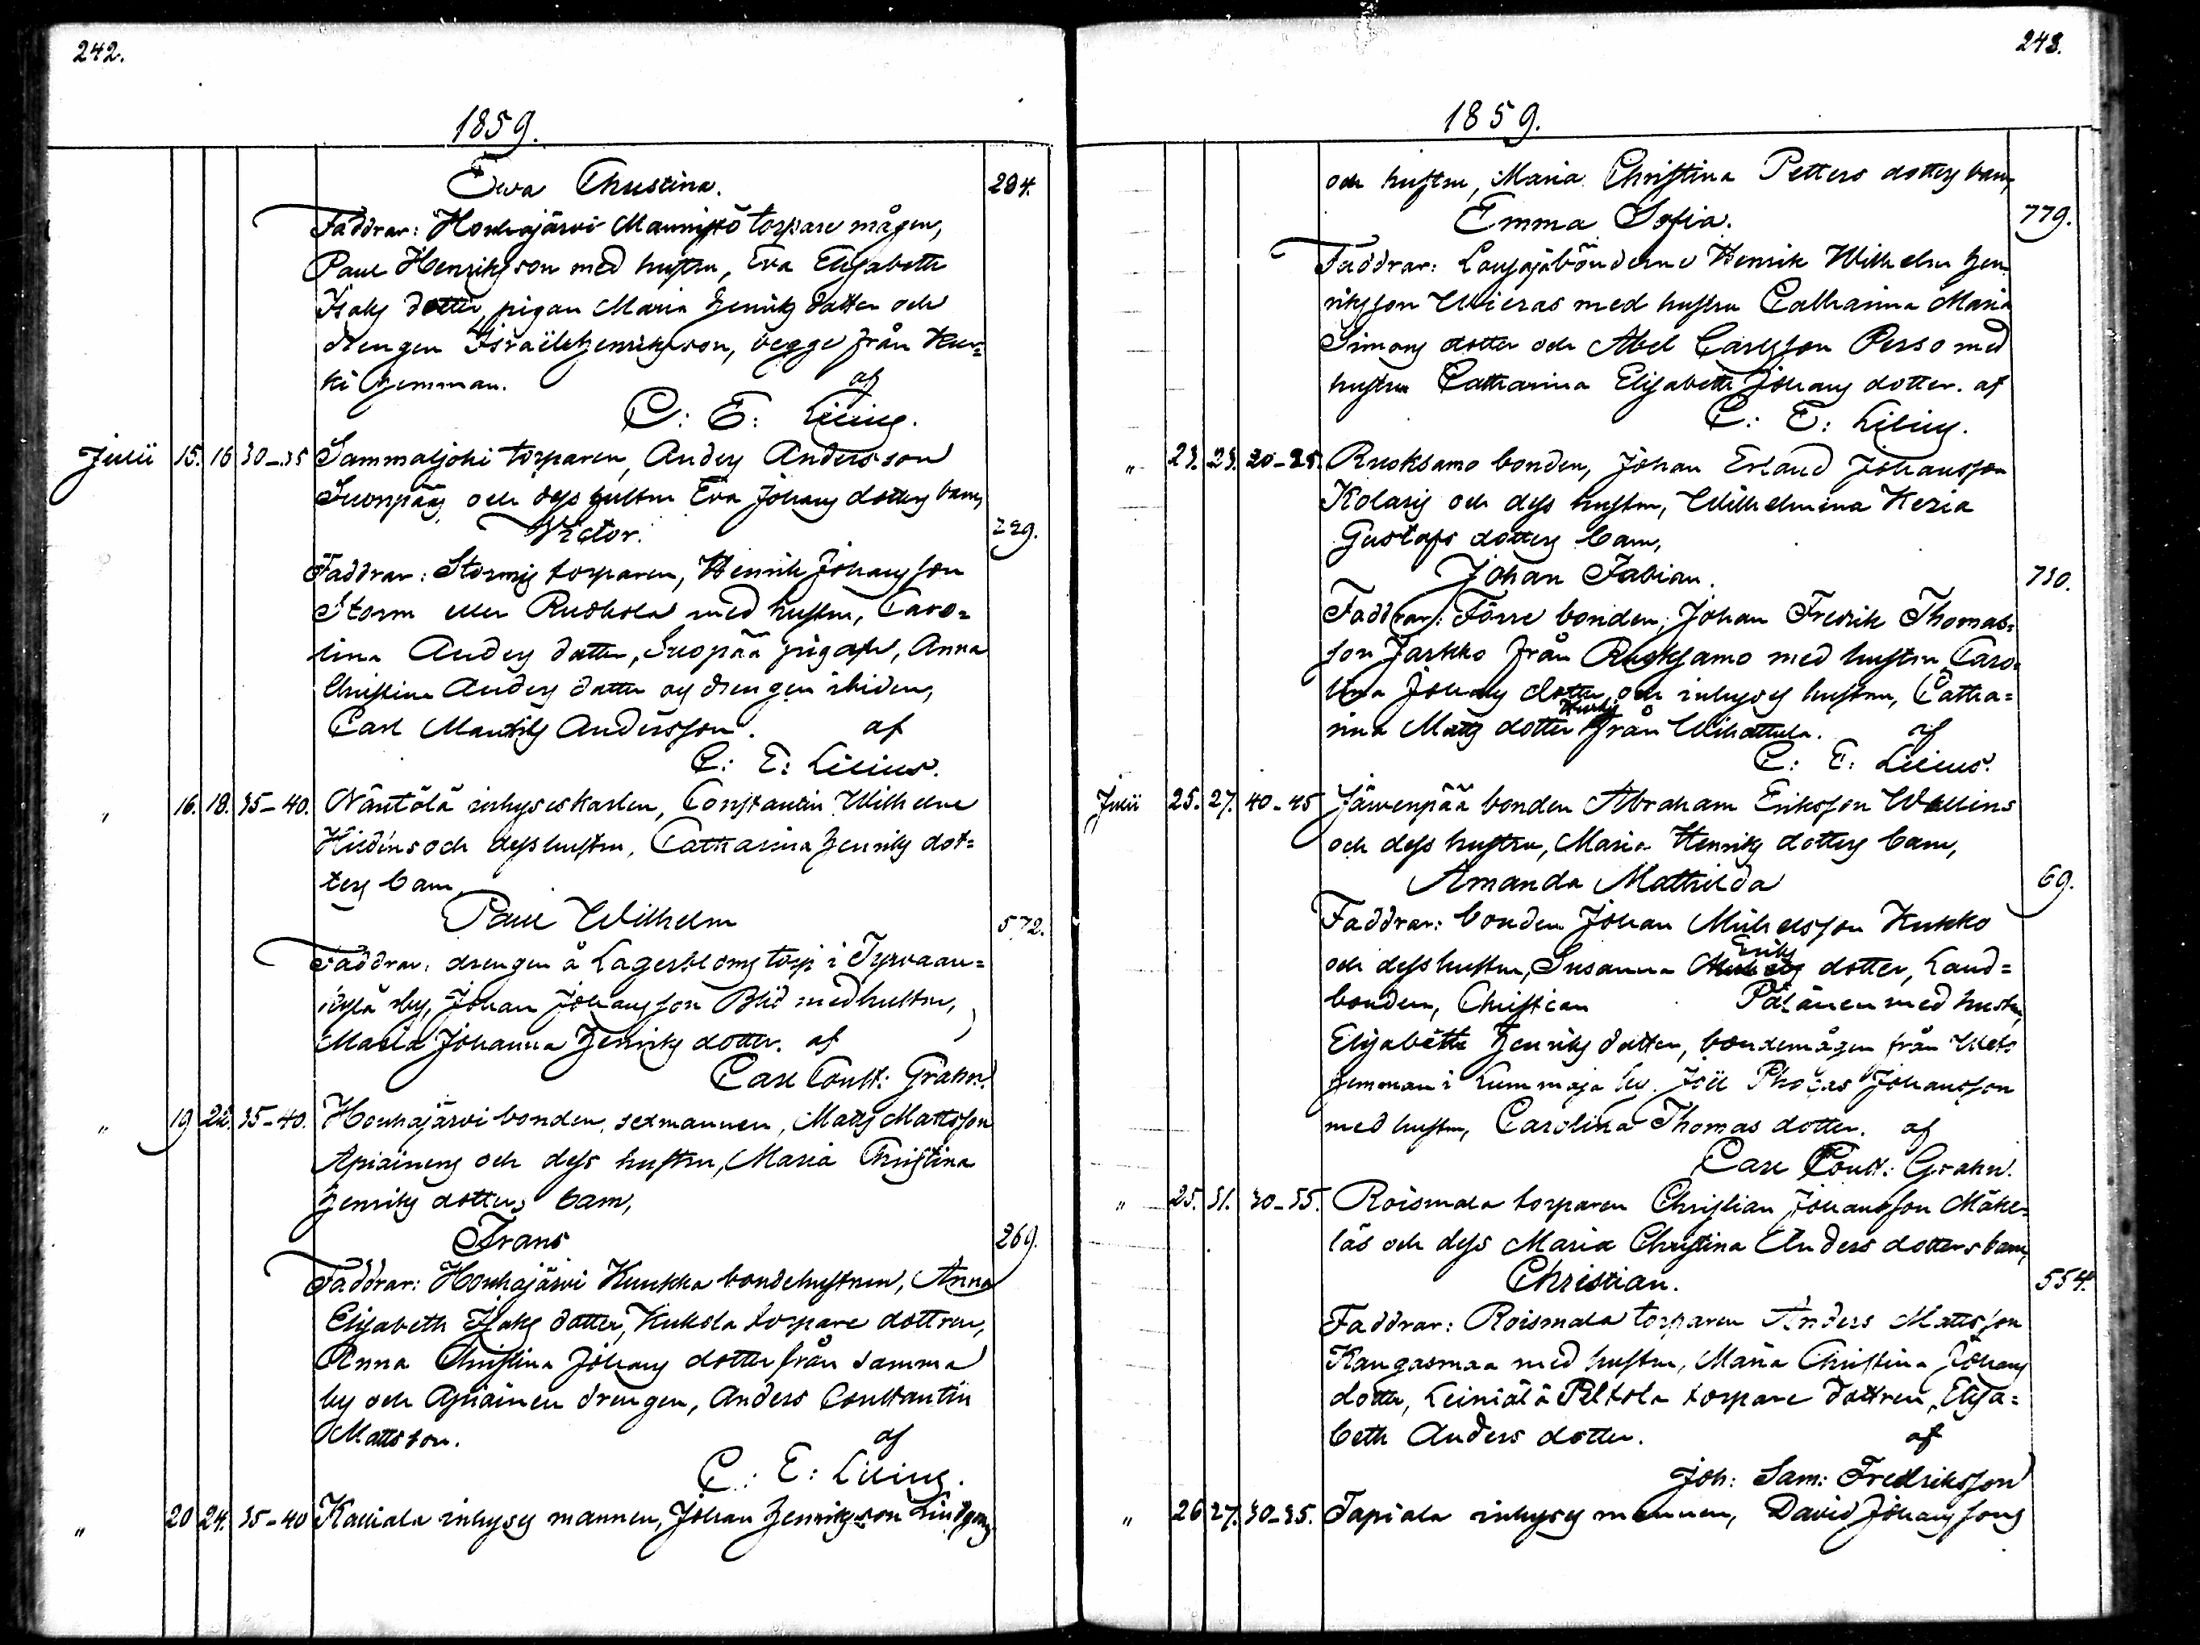 242.
1859.
Ewa Christina. 294.
Faddrar: Houhajärvi Mannistö torpare mågen,
Paul Henriksson med hustru, Eva Elisabeth
Isaks dotter, pigan Maria Henriks dotter och
drengen Israël Henriksson, begge från Kur=
ki hemman. af
C: E: Lilius.
Julii 15. 16 30-35 Sammaljoki torparen, Anders Andersson
Suonpääs och dess hustru Eva Johans dotters barn,
Victor. 229.
Faddrar: Stormis torparen, Henrik Johansson
Storm eller Ruohola med hustru, Caro=
lina Anders dotter, Suopää pigan, Anna
Christina Anders dotter och drengen ibidem,
Carl Mauritz Andersson. af
C: E: Lilius.
" 16. 18. 35-40. Näntölä inhyseskarlen, Constantin Wilhelm
Hildéns och dess hustru, Catharina Henriks dot=
ters barn
Paul Wilhelm 572.
Faddrar: drengen å Lagerbloms torp i Tyrvään=
kylä by, Johan Johansson Blid med hustru,
Maria Johanna Henriks dotter. af
Carl Const: Grahn.
" 19 22. 35-40. Houhajärvi bonden, sexmannen, Matts Mattsson
Apiainens och dess hustru, Maria Christina
Henriks dotters barn,
Frans 269.
Faddrar: Houhajärvi Kuukka bondehustrun, Anna
Elisabeth Isaks dotter, Kukola torpare dottren,
Anna Christina Johans dotter från samma
by och Apiainen drengen, Anders Constantin
Mattsson. af
C: E: Lilius.
" 20 24. 35-40 Kauiala inhyses mannen, Johan Henriksson Lindgrens
243.
1859.
och hustru, Maria Christina Petters dotters barn,
Emma Sofia. 779.
Faddrar: Lousajabönderne Henrik Wilhelm Hen=
riksson Uvieras med hustru Catharina Maria
Simons dotter och Abel Carlsson Perso med
hustru Catharina Elisabeth Johans dotter. af
C: E: Lilius.
" 23. 23. 20-25. Ruoksamo bonden, Johan Erland Johansson
Kolaris och dess hustru, Wilhelmina Keria
Gustafs dotters barn,
Johan Fabian. 730.
Faddrar: Förre bonden, Johan Fredrik Thomas=
son Jaskko från Ruoksamo med hustru Caro=
lina Johans dotter, och inhyses hustrun, Catha=
rina Matts dotter från Wihattula. af
C: E: Lilius.
Julii 25. 27. 40-45 Järvenpää bonden Abraham Eriksson Wallins
och dess hustru, Maria Henriks dotters barn,
Amanda Mathilda 69.
Faddrar: bonden Johan Michelsson Kukko
och dess hustru, Susanna Eriks dotter, Land=
bonden, Christian Pälänen med hustru,
Elisabeth Henriks dotter, bondemågen från Uets
hemman i Lummaja by. Joël Phocas Johansson
med hustru, Carolina Thomas dotter. af
Carl Const: Grahn.
" 25. 31. 30-35. Roismala torparen Christian Johansson Mäke=
läs och dess Maria Christina Anders dotters barn,
Christian. 554.
Faddrar: Roismala torparen Anders Mattsson
Kangasmaa med hustru, Maria Christina Johans
dotter, Leiniälä Peltola torpare dottren, Elisa=
beth Anders dotter. af
Joh: Sam: Fredriksson
" 26 27. 30-35. Tapiala inhyses mannen, David Johanssons